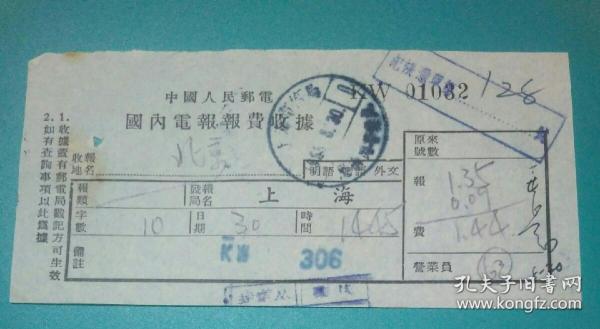 中國人民郵電
KW 01032
國內電報報費收據
128
1. 收據蓋有郵電局戳記方可生效
2. 如有查詢事項以此為據
收報地名 北京
明語 密語 外文
原來號數
報類
發報局名 上海
報費 1.35
0.09
1.44
字數 10
日期 30
時間 1445
備註
KW 306
營業員
孔夫子旧书网
www.kongfz.com